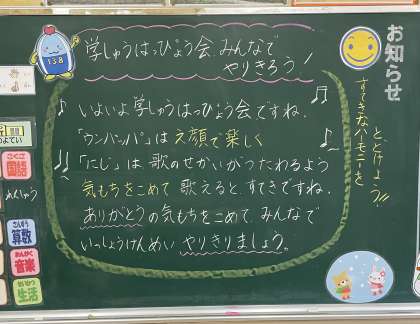 学しゅうはっぴょう会、みんなで
やりきろう!
いよいよ学しゅうはっぴょう会ですね。
「ウンパッパ」は えがおで楽しく
「にじ」は 歌のせかいがつたわるよう
気もちをこめて 歌えると、すてきですね。
ありがとうの気もちをこめて、みんなで
いっしょうけんめい やりきりましょう。
お知らせ
とどけよう!!
すてきなハーモニーを
138
よてい
こくご
国語
れんしゅう
さんすう
算数
おんがく
音楽
せいかつ
生活